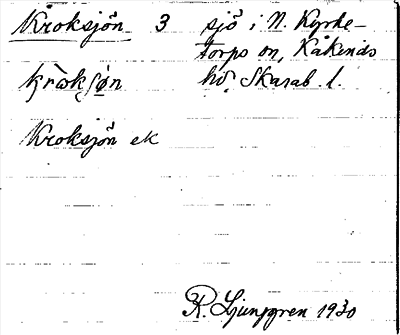 Kroksjön 3 sjö i N. Kyrke-
torps sn, Kåkinds
hd, Skarab. l.
Kroksjön ek
R. Ljunggren 1930